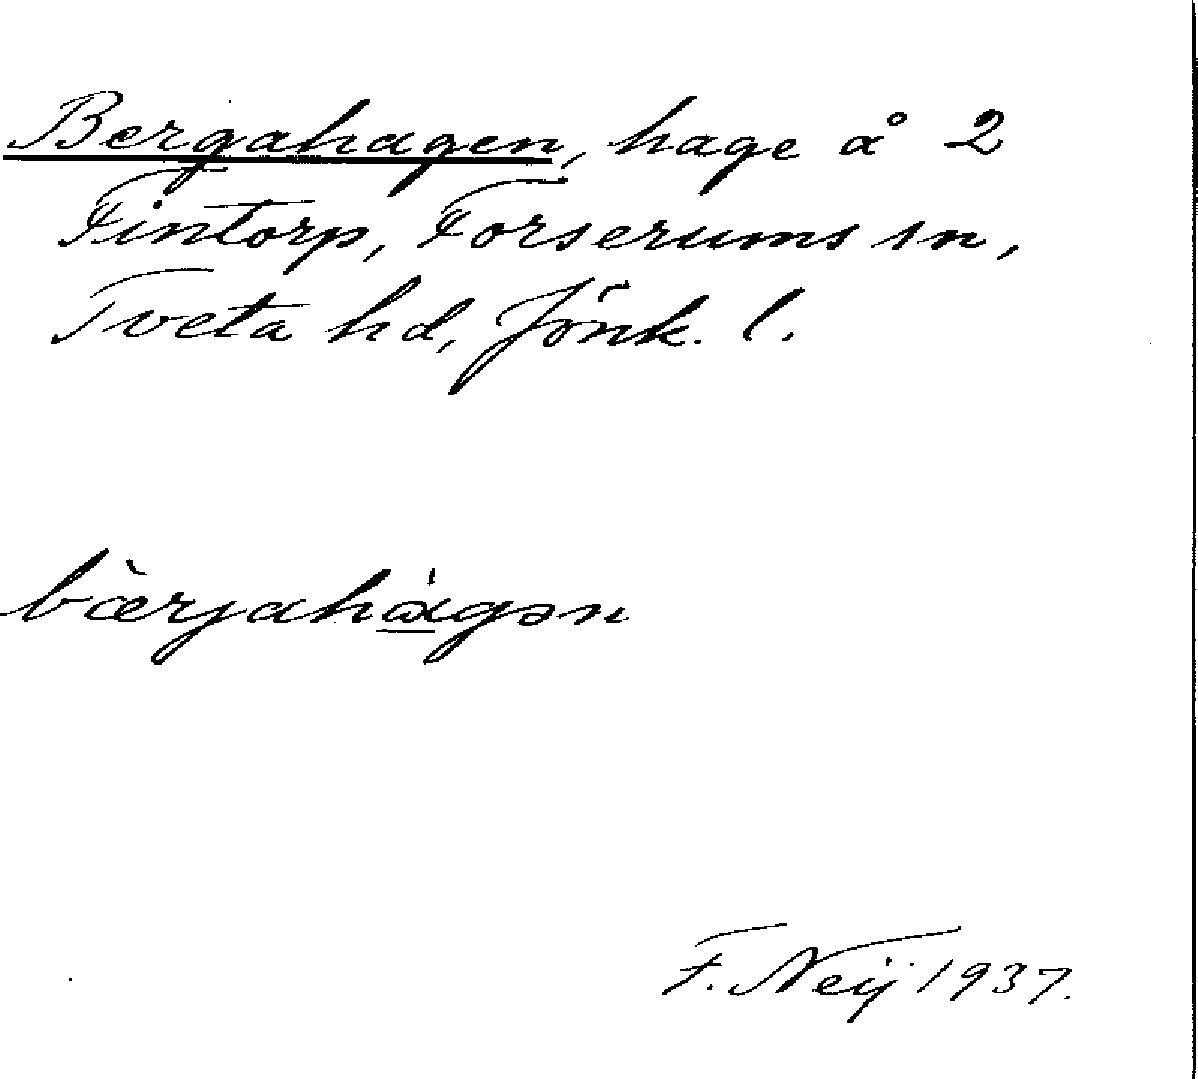 Bergahagen, hage å 2
Fintorp, Forserums sn,
Tveta hd, Jönk. l.
bæ̀rjahɑ̀gən
F. Neij 1937.